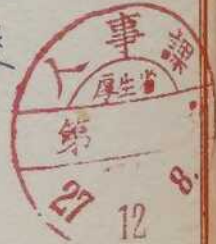 人事課
厚生省
第
27 8.
12